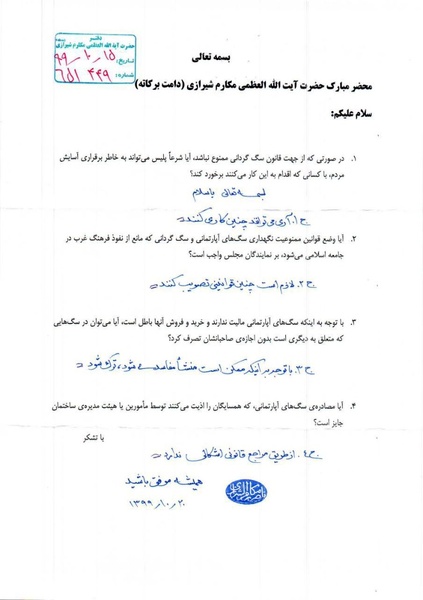 دفتر
حضرت آیة الله العظمی مکارم شیرازی
تاریخ: ۹۹/۱۰/۱۵
شماره: ۶۵۱ ۴۴۹
بسمه تعالی
محضر مبارک حضرت آیت الله العظمی مکارم شیرازی (دامت برکاته)
سلام علیکم:
۱. در صورتی که از جهت قانون سگ گردانی ممنوع نباشد، آیا شرعاً پلیس می‌تواند به خاطر برقراری آسایش
مردم، با کسانی که اقدام به این کار می‌کنند برخورد کند؟
بسمه تعالی باسلام
ج۱. آری می‌توانند چنین کاری کنند.
۲. آیا وضع قوانین ممنوعیت نگهداری سگ‌های آپارتمانی و سگ گردانی که مانع از نفوذ فرهنگ غرب در
جامعه اسلامی می‌شود، بر نمایندگان مجلس واجب است؟
ج۲. لازم است چنین قوانینی تصویب کنند.
۳. با توجه به اینکه سگ‌های آپارتمانی مالیت ندارند و خرید و فروش آنها باطل است، آیا می‌توان در سگ‌هایی
که متعلق به دیگری است بدون اجازه‌ی صاحبانشان تصرف کرد؟
ج۳. با توجه به اینکه ممکن است منشأ مفاسدی شود، ترک شود.
۴. آیا مصادره‌ی سگ‌های آپارتمانی، که همسایگان را اذیت می‌کنند توسط مأمورین یا هیئت مدیره‌ی ساختمان
جایز است؟
با تشکر
ج۴. از طریق مراجع قانونی اشکالی ندارد.
همیشه موفق باشید
۱۳۹۹،۱۰،۲۰